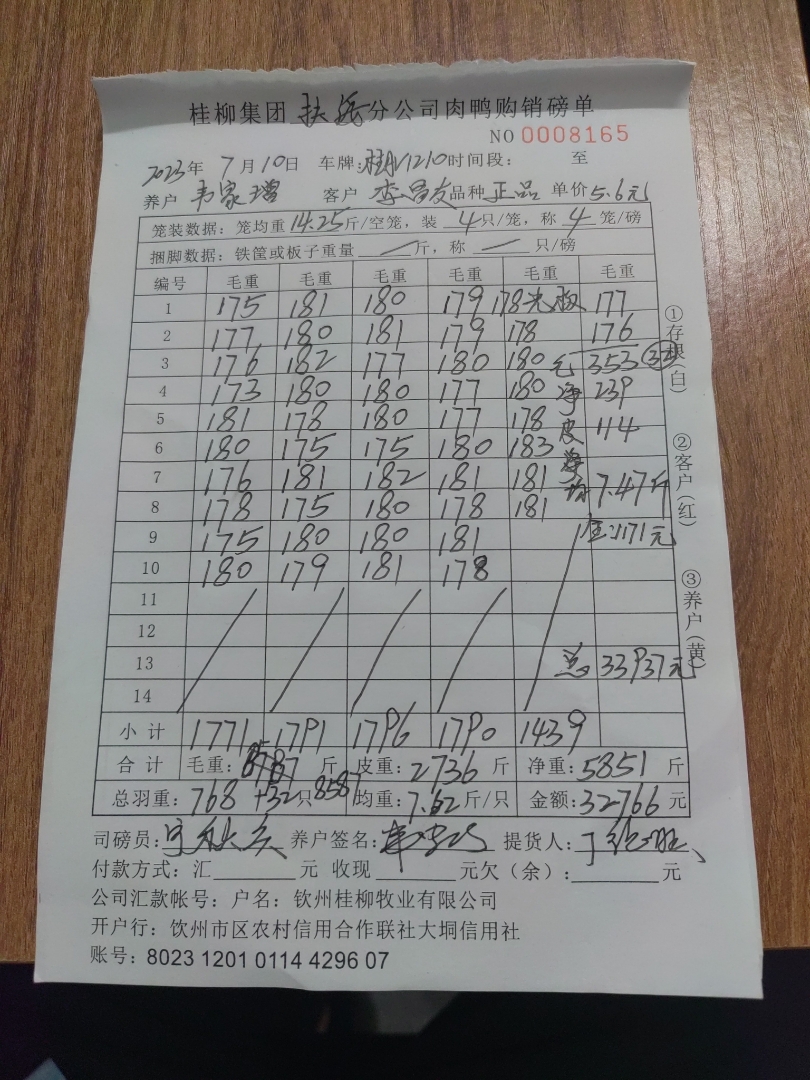 桂柳集团扶绥分公司肉鸭购销磅单
NO 0008165
2023年 7月10日 车牌:桂N1210 时间段: 至
养户 韦家增 客户 李昌友 品种 正品 单价 5.6元
笼装数据: 笼均重 14.25 斤/空笼, 装 4 只/笼, 称 4 笼/磅
捆脚数据: 铁筐或板子重量 / 斤, 称 / 只/磅
编号 毛重 毛重 毛重 毛重 毛重 毛重
1 175 181 180 179 178 177
2 177 180 181 179 178 176
3 176 182 177 180 180 毛 353 32
4 173 180 180 177 180 净 239
5 181 178 180 177 178 皮 114
6 180 175 175 180 183
7 176 181 182 181 181 均 7.47斤
8 178 175 180 178 181
9 175 180 180 181 1171元
10 180 179 181 178
11
12
13 总 33937元
14
小计 1771 1791 1796 1790 1439
合计 毛重: 斤 皮重: 2736 斤 净重: 5851 斤
总羽重: 768 +32 只 8587 均重: 7.62 斤/只 金额: 32766 元
司磅员: 养户签名: 提货人:
付款方式: 汇 元 收现 元欠(余): 元
公司汇款帐号: 户名: 钦州桂柳牧业有限公司
开户行: 饮州市区农村信用合作联社大垌信用社
账号: 8023 1201 0114 4296 07
①存根(白)
②客户(红)
③养户(黄)